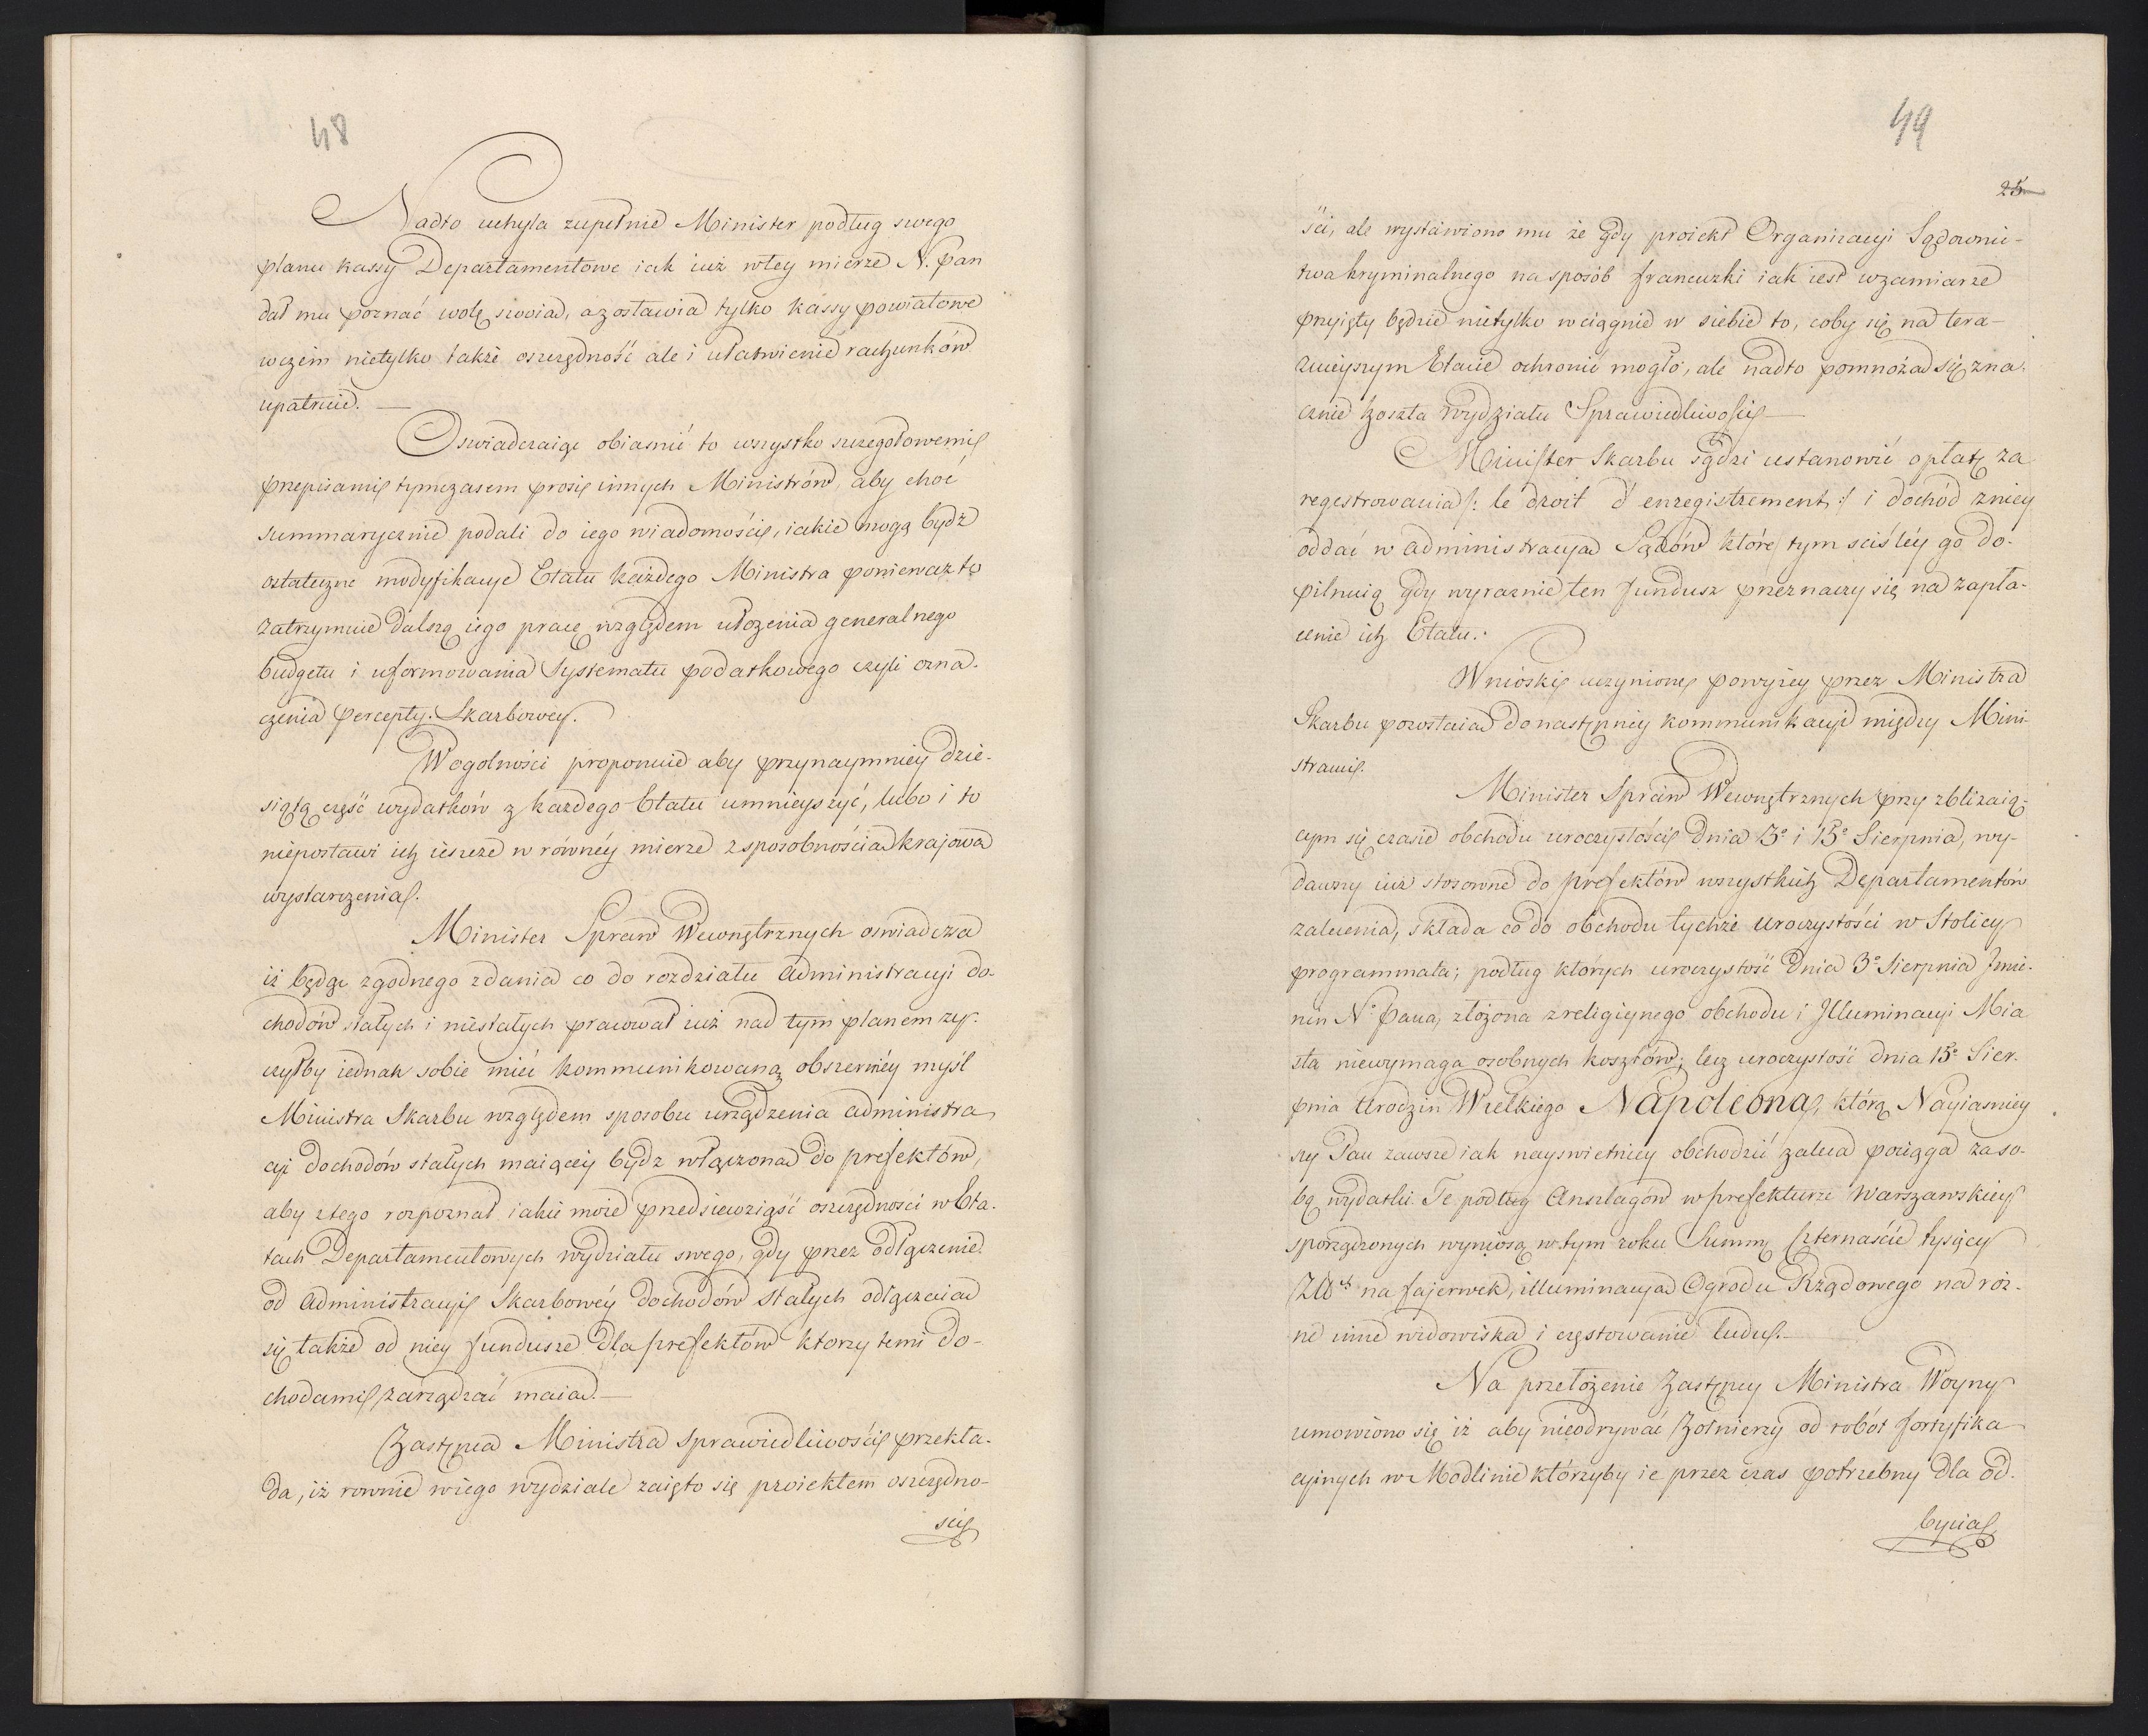 48
Nadto uchyla zupełnie Minister podług swego
planu kassy Departamentowe iak iuż w tey mierze N. Pan
dał mu poznać wolę swoia, a zostawia tylko kassy powiatowe
w czem nietylko także oszczędność ale i ułatwienie rachunków
upatruie. —
Oswiadczaiąc obiasnić to wszystko szczegołowemi
przepisami tymczasem prosi innych Ministrów, aby choć
summarycznie podali do iego wiadomości, iakie mogą bydź
ostateczne modyfikacye Etatu każdego Ministra ponieważ to
zatrzymuie dalszą iego pracę względem ułożenia generalnego
budgetu i uformowania Systematu podatkowego czyli ozna-
czenia percepty Skarbowey.
W ogolności proponuie aby przynaymniey dzie-
siątą część wydatków z każdego Etatu umnieyszyć, lubo i to
niepostawi ich ieszcze w równéy mierze z sposobnościa krajowa
wystarczenia.
Minister Spraw Wewnętrznych oswiadcza
iż będąc zgodnego zdania co do rozdziału administracyi do-
chodów stałych i niestałych pracował iuż nad tym planem ży-
czyłby iednak sobie mieć kommunikowaną obszerniéy myśl
Ministra Skarbu względem sposobu urządzenia administra
cyi dochodów stałych maiącéy bydz włączona do prefektów,
aby z tego rozpoznał iakie może przedsiewziąść oszczędności w Eta-
tach Departamentowych wydziału swego, gdy przez odłączenie
od administracyi Skarbowéy dochodów stałych odłączaia
się także od niey fundusze dla prefektów ktorzy temi do-
chodami zarządzać maia. —
Zastępca Ministra Sprawiedliwości przekła-
da, iż rownie w iego wydziale zaięto się proiektem oszczędno-
sci
49
25
ści, ale wystawiono mu że gdy proiekt Organizacyi Sądownic-
twa kryminalnego na sposób francuzki iak iest w zamiarze
przyięty będzie nietylko wciągnie w siebie to, coby się na tera-
znieyszym Etacie ochronić mogło, ale nadto pomnoża się zna-
cznie koszta Wydziału Sprawiedliwości —
Minister Skarbu sądzi ustanowić opłatę za
regestrowania /: le droit d'enregistrement :/ i dochód z niey
oddać w administracya Sądów które tym sciśléy go do-
pilnuią gdy wyraznie ten fundusz przeznaczy się na zapła-
cenie ich Etatu.
Wnioski uczynione powyżey przez Ministra
Skarbu pozostaia do następnéy kommunikacyi między Mini-
strami.
Minister Spraw Wewnętrznych przy zbliżaią-
cym się czasie obchodu uroczystości dnia 3º i 15º Sierpnia, wy-
dawszy iuż stosowne do prefektów wszystkich Departamentów
zalecenia, składa co do obchodu tychże uroczystości w Stolicy
programmata; podług których uroczystość dnia 3º Sierpnia Imie-
nin N. Pana, złożona z religiynego obchodu i Illuminacyi Mia
sta niewymaga osobnych kosztów; lecz uroczystość dnia 15º Sier-
pnia Urodzin Wielkiego Napoleona, którą Nayiasniey
szy Pan zawsze iak nayswietniey obchodzić zaleca pociąga za so-
bą wydatki. Te podług Anszlagów w prefekturze Warszawskiey
sporządzonych wyniosą w tym roku Summę czternaście tysięcy
Złt na fajerwek, illuminacya Ogrodu Rządowego na róż-
ne inne widowiska i częstowanie ludu. —
Na przełożenie Zastępcy Ministra Woyny
umowiono się iż aby nieodrywać żołnierzy od robót fortyfika
cyinych w Modlinie którzyby ie przez czas potrzebny dla od-
bycia